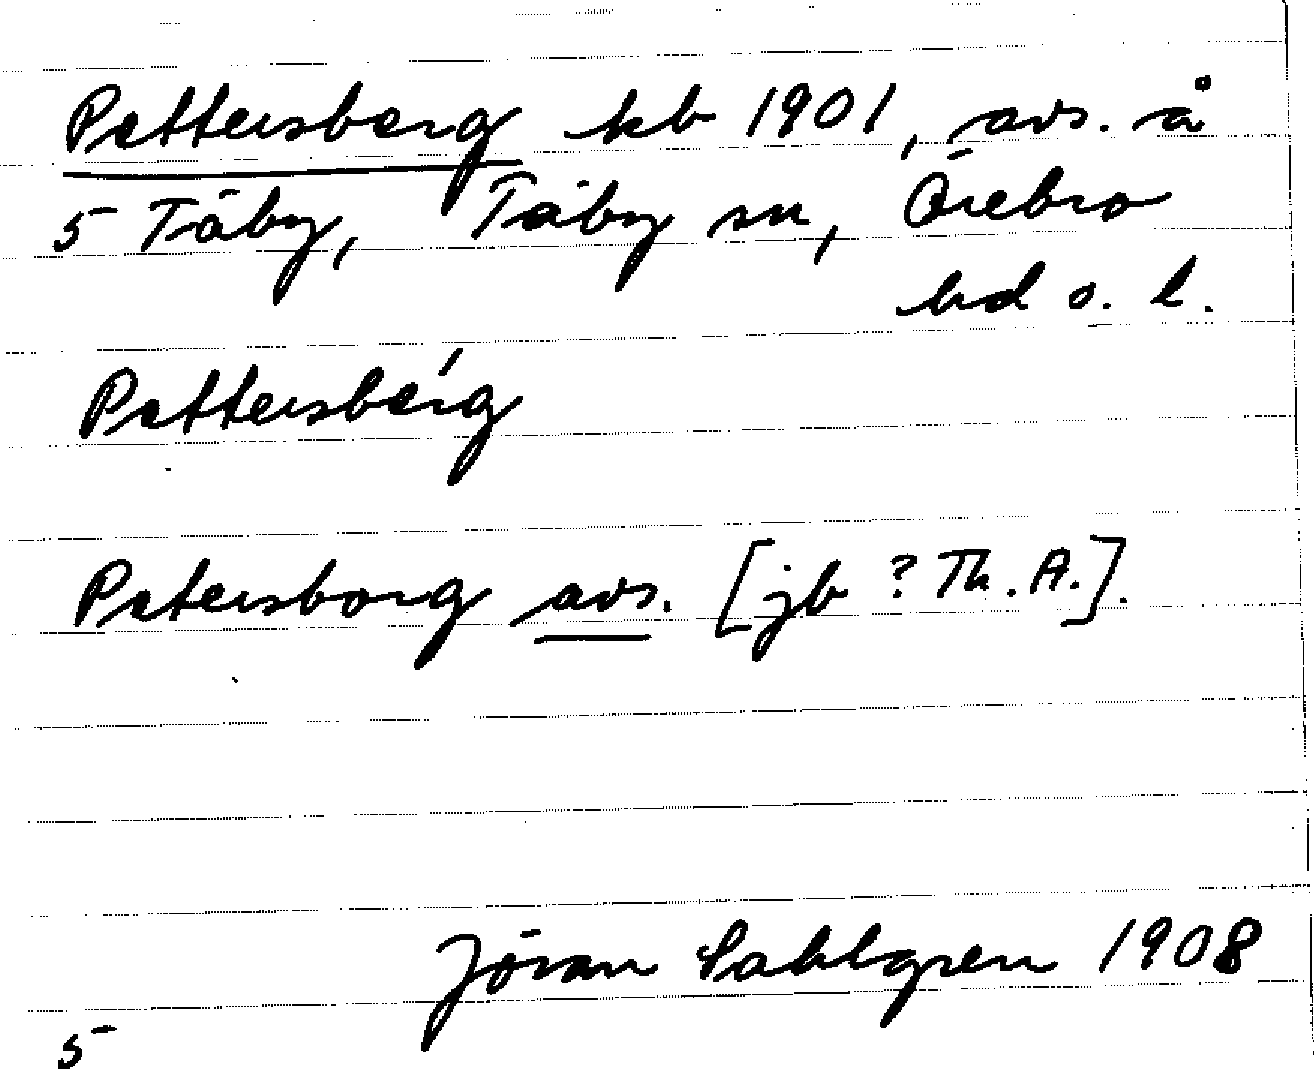 Pettersberg kb 1901, avs. å
5 Täby, Täby sn, Örebro
hd o. l.
Pettersbérg
Petersborg avs. [jb ? Th. A.].
Jöran Sahlgren 1908
5